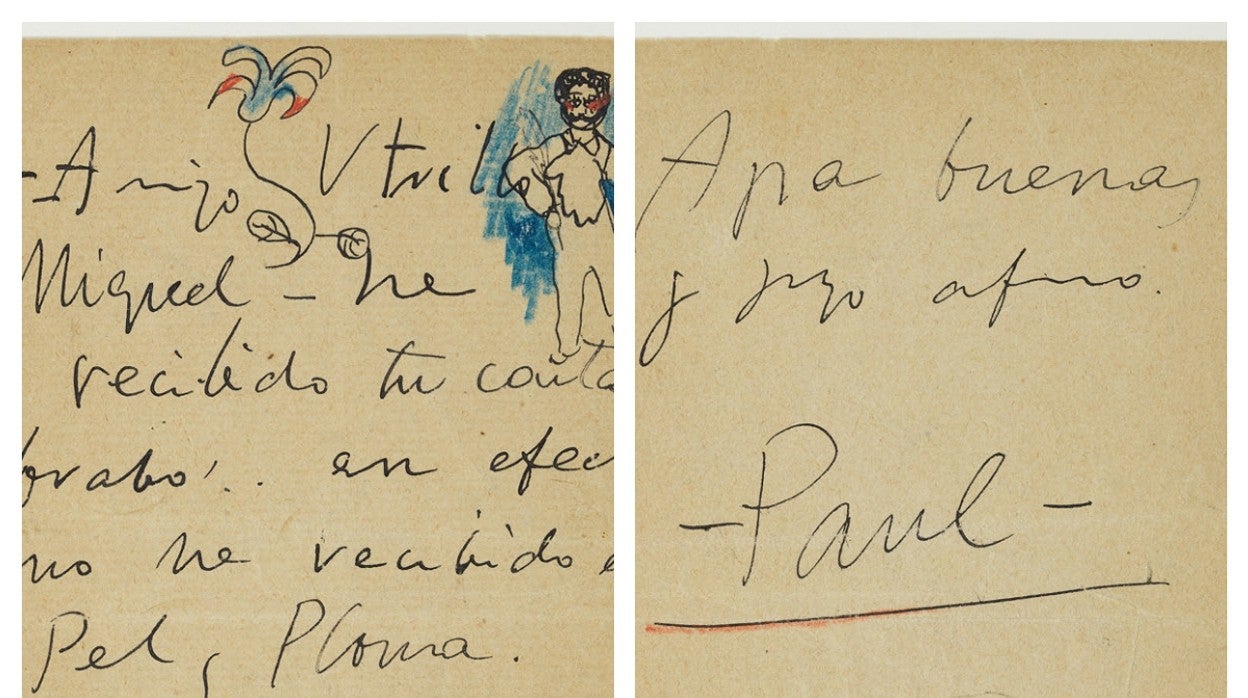 -Amigo Utrillo
Miguel - he
recibido tu carta
brabo'.. en efec
no he recibido
Pel, Ploma.
Apa buenas
y
afmo.
-Paul-